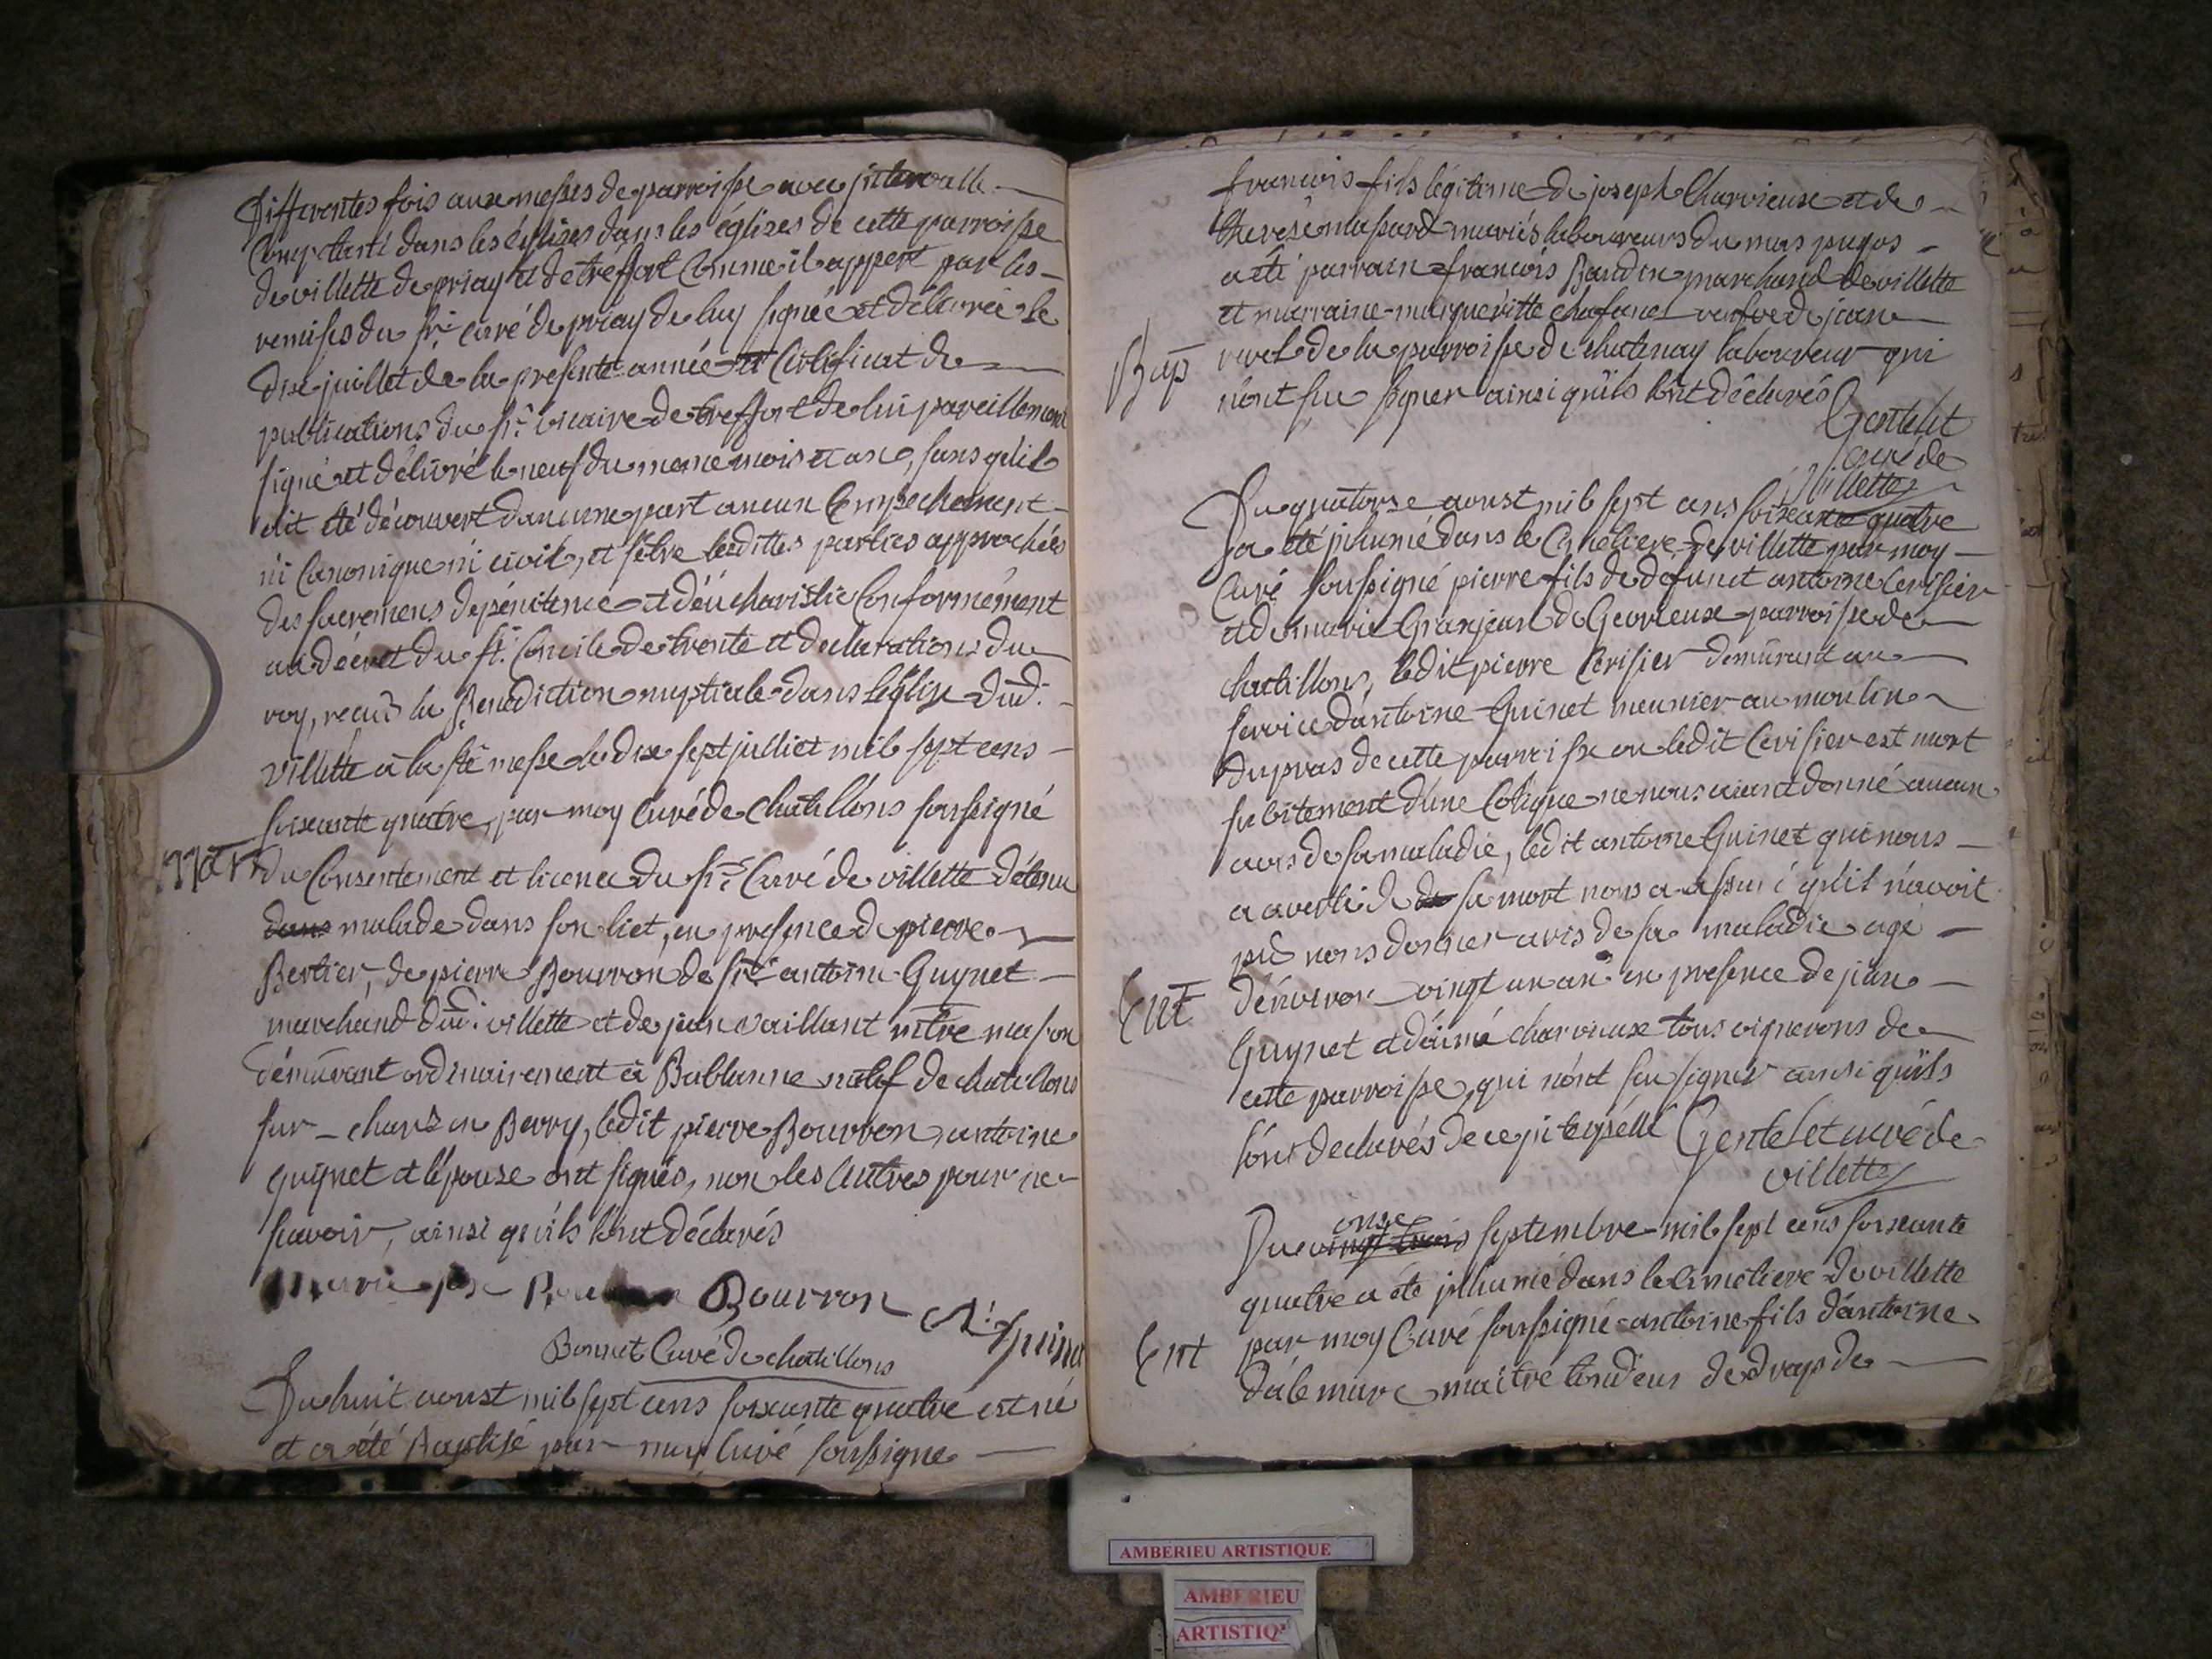 Differentes fois aux messes de parroisse avec jntervalle
Competant dans les églises dans les églises de cette parroisse
de villette de priay et de treffort Comme il appert par les
remises du sr. curé de priay de luy signée et délivrée le
dix juillet de la presente année et Certificat de
publications du sr. vicaire de treffort de lui pareillement
signé et délivré le neuf du meme mois et an, sans qu'il
ait été découvert d'aucune part aucun Empechement
ni Canonique ni civil, et s'être lesdittes parties approchées
des sacremens de pénitence et d'éucharistie Conformément
au décret du st. Concile de trente et declarations du
roy, reçu la Benediction nuptiale dans léglise dud.
villette à la ste messe le dix sept julliet mil sept cens
soixante quatre, par moy Curé de Chatillons soussigné
Mar
du Consentement et licence du sr. Curé de villette détenu
dans malade dans son lict, en presence de pierre
Bertier, de pierre Bourron de sr. antoine Guynet
marchand dud. villette et de jean vaillant mtre mason
démûrant ordinairement à Bublanne natif de chatillons
sur - chars en Berry, ledit pierre Bourron, antoine
guynet et lépouse ont signés, non les Autres pour ne
scavoir, ainsi qu'ils l'ont déclarés
Marie Bourron
Bonnet Curé de chatillons
Du huit aoust mil sept cens soixante quatre est né
et a été Baptisé par moy Curé soussigné
francois fils légitime de joseph Charvieux et de
therese massard mariés laboureurs du mas pugos
a été parrain francois Baudin marchand de villette
et marraine margueritte veufve de jean
Bap
rivel de la parroisse de chatenay laboureur qui
n'ont sçu signer ainsi qu'ils l'ont déclarés
Gentelet
curé de
villette
Du quatorse aoust mil sept cens soixante quatre
a été jnhumé dans le Cimetiere de villette par moy
Curé soussigné pierre fils de défunct antoine Cerisier
et de marie Granjean de Gevrieux parroisse de
chatillons, ledit pierre Cerisier demûrant au
service d'antoine Guinet meunier au moulin
dupras de cette parroisse ou ledit Cerisier est mort
subitement d'une Colique ne nous aiant donné aucun
avis de sa maladie, ledit antoine Guinet qui nous
a averti de de sa mort nous a assuré qu'il n'avoit
pû nous donner avis de sa maladie agé
Ent
d'énviron vingt un an en presence de jean
Guynet et d'aimé charvieux tous vignerons de
cette parroisse, qui n'ont sçu signer ainsi qu'ils
l'ont declarés de ce jnterpéllé Gentelet curé de
villette
onse
Du vingt trois septembre mil sept cens soixante
quatre a été jnhumé dans le Cimetiere de villette
Ent
par moy Curé soussigné antoine fils d'antoine
dalemare maitre tondeur de draps de
AMBERIEU ARTISTIQUE
AMBERIEU
ARTISTIQ